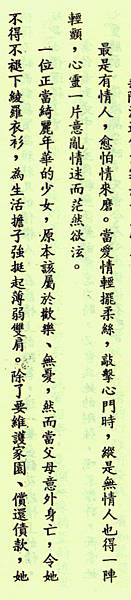 最是有情人，愈怕情來磨。當愛情輕擺柔絲，敲擊心門時，縱是無情人也得一陣
輕顫，心靈一片意亂情迷而茫然欲泫。
一位正當綺麗年華的少女，原本該屬於歡樂、無憂，然而當父母意外身亡，令她
不得不褪下綾羅衣衫，為生活擔子強挺起薄弱雙肩。除了要維護家園、償還債款，她